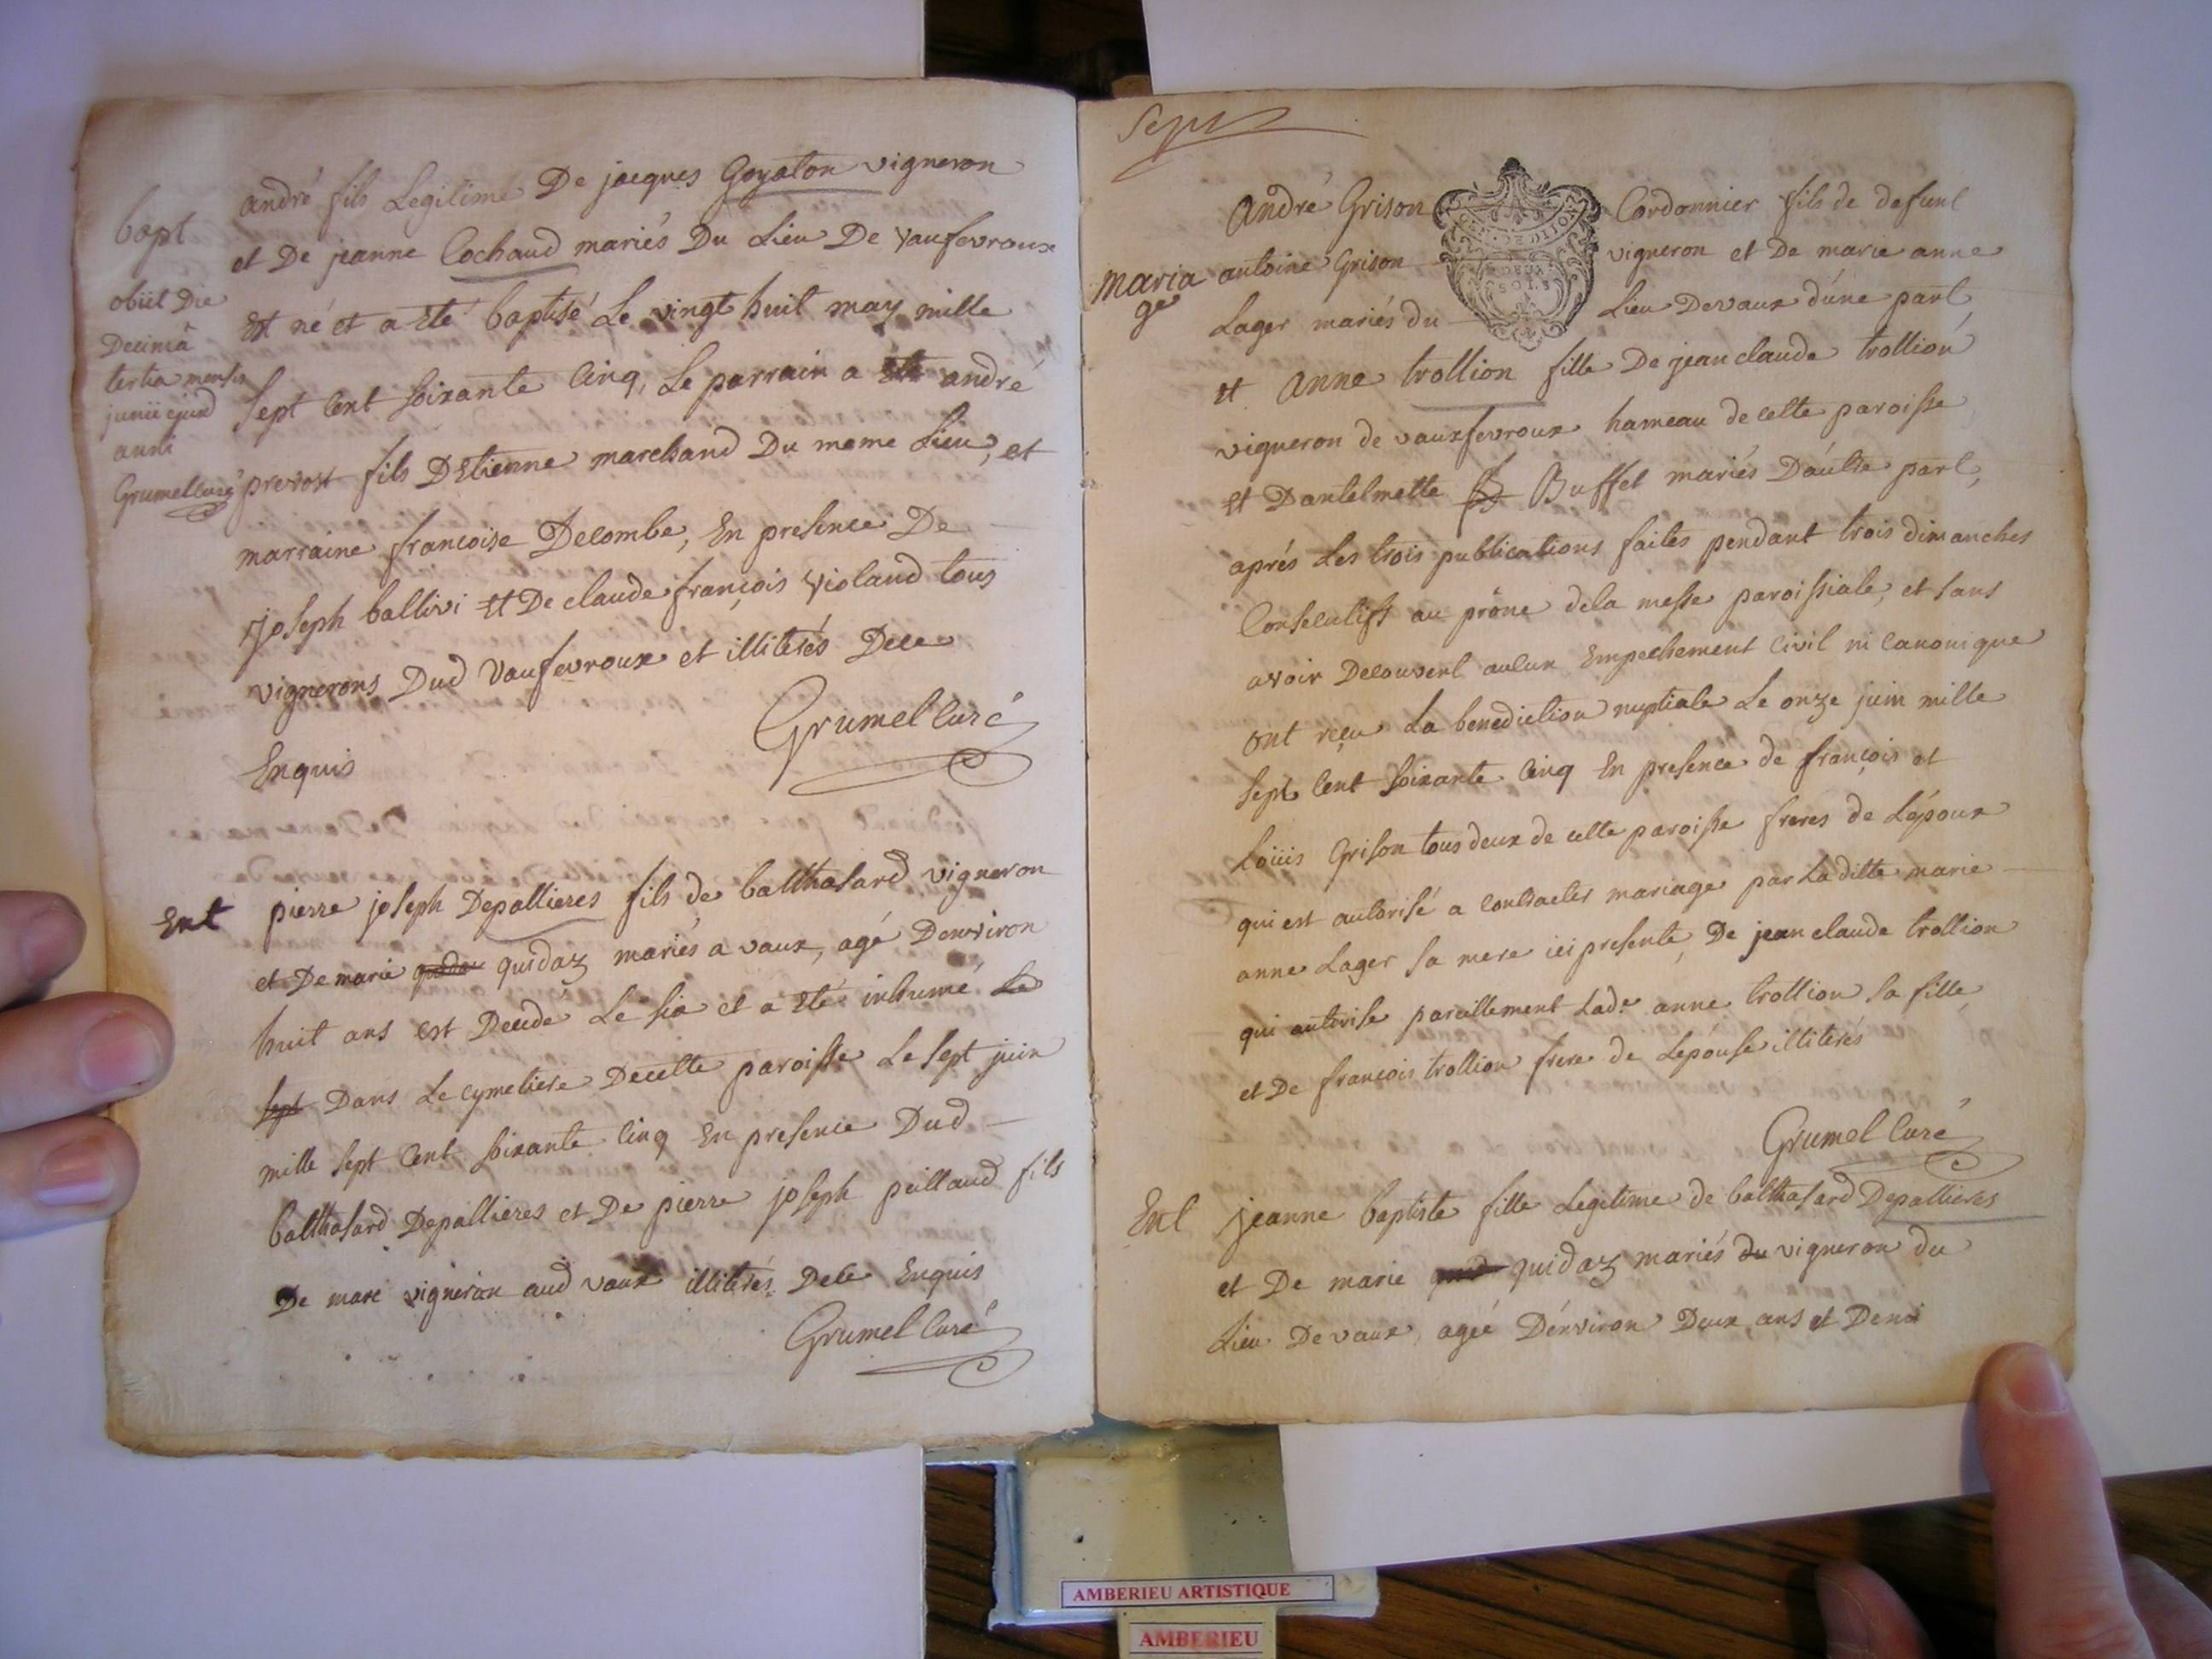 bapt
obiit Die
Decimâ
tertia mensis
junii ejusd
anni
Grumel Curé
andré fils Legitime De jacques Goyaton vigneron
et De jeanne Cochaud mariés Du Lieu De Vaufevroux
Est né et a Eté baptisé Le vingt huit may mille
sept Cent soixante Cinq, Le parrain a Eté andré
prevost fils DEtienne marchand Du meme Lieu, et
marraine francoise Decombe, En presence De
joseph ballivi Et De claude françois Violand tous
vignerons Dud Vaufevroux et illiterés Dece
Enquis
Grumel Curé
Ent
pierre joseph Depallieres fils de balthasard vigneron
et De marie quidaz mariés a vaux, agé Denviron
huit ans est Decede Le six et a Eté inhumé Le
sept Dans Le cymetiere Decette paroisse Le sept juin
mille sept Cent soixante Cinq En presence Dud
balthasard Depallieres et De pierre joseph peillaud fils
De marc vigneron aud vaux illiterés Dece Enquis
Grumel Curé
Sept
maria
ge
andré Grison Cordonnier fils de defunt
antoine Grison vigneron et De marie anne
Lager mariés du Lieu Devaux d'une part
Et anne trollion fille De jean claude trollion
vigneron de vauxfevroux hameau de cette paroisse
Et Dantelmette Buffet mariés D'autre part,
aprés Les trois publications faites pendant trois dimanches
Consecutifs au prône dela messe paroissiale, et sans
avoir Decouvert aucun Empechement Civil ni Canonique
ont reçu La benediction nuptiale Le onze juin mille
sept Cent soixante Cinq En presence de françois et
Loüis Grison tous deux de cette paroisse freres de L'époux
qui est autorisé a Contracter mariage par Laditte marie
anne Lager sa mere ici presente, De jean claude trollion
qui autorise pareillement Lade anne trollion sa fille,
et De francois trollion frere de Lepouse illiterés
Grumel Curé
Ent
jeanne baptiste fille Legitime de balthasard Depallieres
et De marie quidaz mariés du vigneron du
Lieu De vaux, agée D'environ Deux ans et Demi
AMBERIEU ARTISTIQUE
AMBERIEU